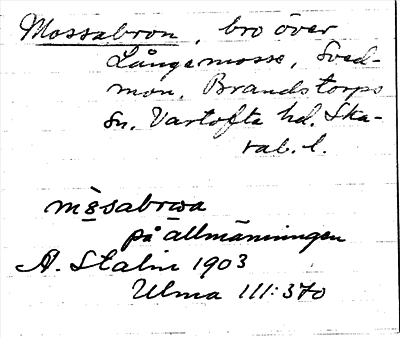 Mossabron, bro över
Långemosse, Sved-
mon, Brandstorps
sn. Vartofta hd. Ska-
rab. l.
på allmänningen
A. Stalin 1903
Ulma 111:370